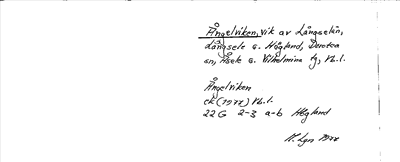 Ångelviken, vik av Långselån,
Långsele o. Högland, Dorotea
sn, Åsele o. Vilhelmina tg, Vb.l.
Ångelviken
ek (1977) Vb.l.
22 G 2-3 a-b Högland